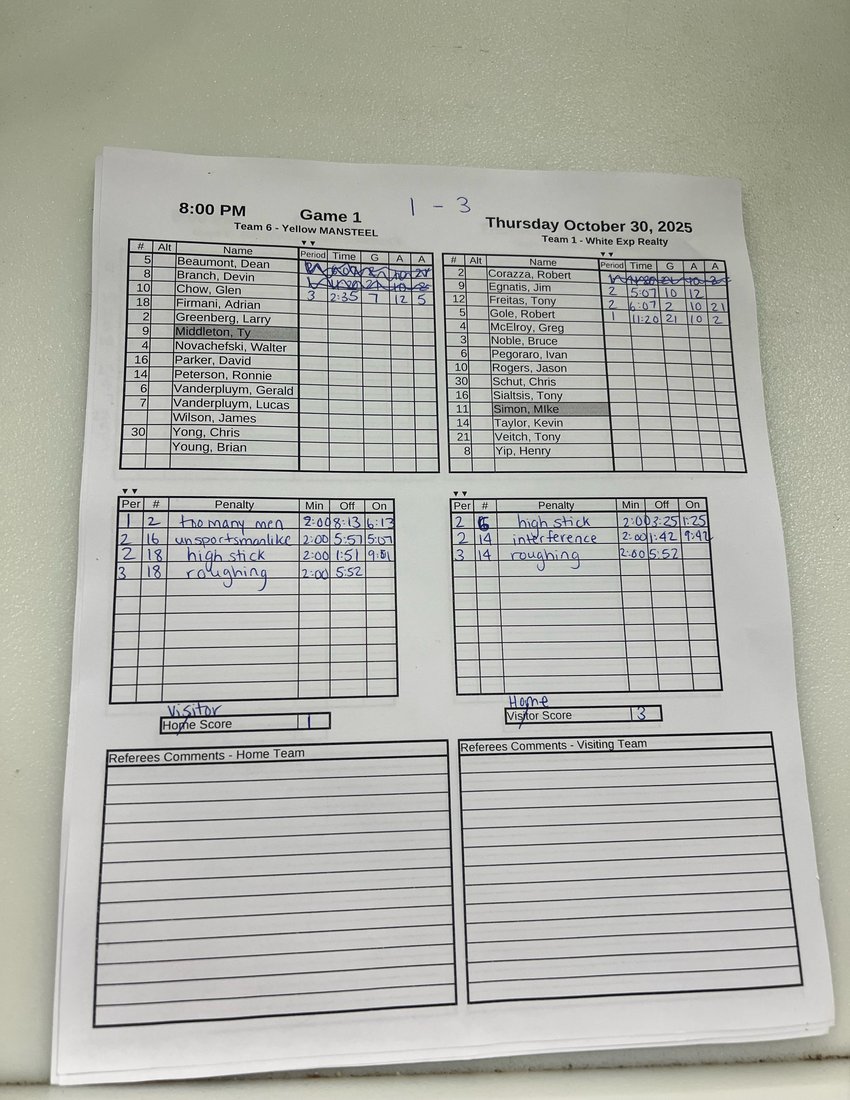 8:00 PM Game 1 1 - 3 Thursday October 30, 2025
Team 6 - Yellow MANSTEEL Team 1 - White Exp Realty
# Alt Name Period Time G A A
5 Beaumont, Dean
8 Branch, Devin
10 Chow, Glen 3 2:35 7 12 5
18 Firmani, Adrian
2 Greenberg, Larry
9 Middleton, Ty
4 Novachefski, Walter
16 Parker, David
14 Peterson, Ronnie
6 Vanderpluym, Gerald
7 Vanderpluym, Lucas
Wilson, James
30 Yong, Chris
Young, Brian
# Alt Name Period Time G A A
2 Corazza, Robert
9 Egnatis, Jim 2 5:07 10 12
12 Freitas, Tony 2 6:07 2 10 21
5 Gole, Robert 1 11:20 21 10 2
4 McElroy, Greg
3 Noble, Bruce
6 Pegoraro, Ivan
10 Rogers, Jason
30 Schut, Chris
16 Sialtsis, Tony
11 Simon, MIke
14 Taylor, Kevin
21 Veitch, Tony
8 Yip, Henry
Per # Penalty Min Off On
1 2 too many men 2:00 8:13 6:13
2 16 unsportsmanlike 2:00 5:57 5:07
2 18 high stick 2:00 1:51 9:51
3 18 roughing 2:00 5:52
Per # Penalty Min Off On
2 6 high stick 2:00 3:25 1:25
2 14 interference 2:00 1:42 9:42
3 14 roughing 2:00 5:52
Visitor
Home Score 1
Home
Visitor Score 3
Referees Comments - Home Team
Referees Comments - Visiting Team